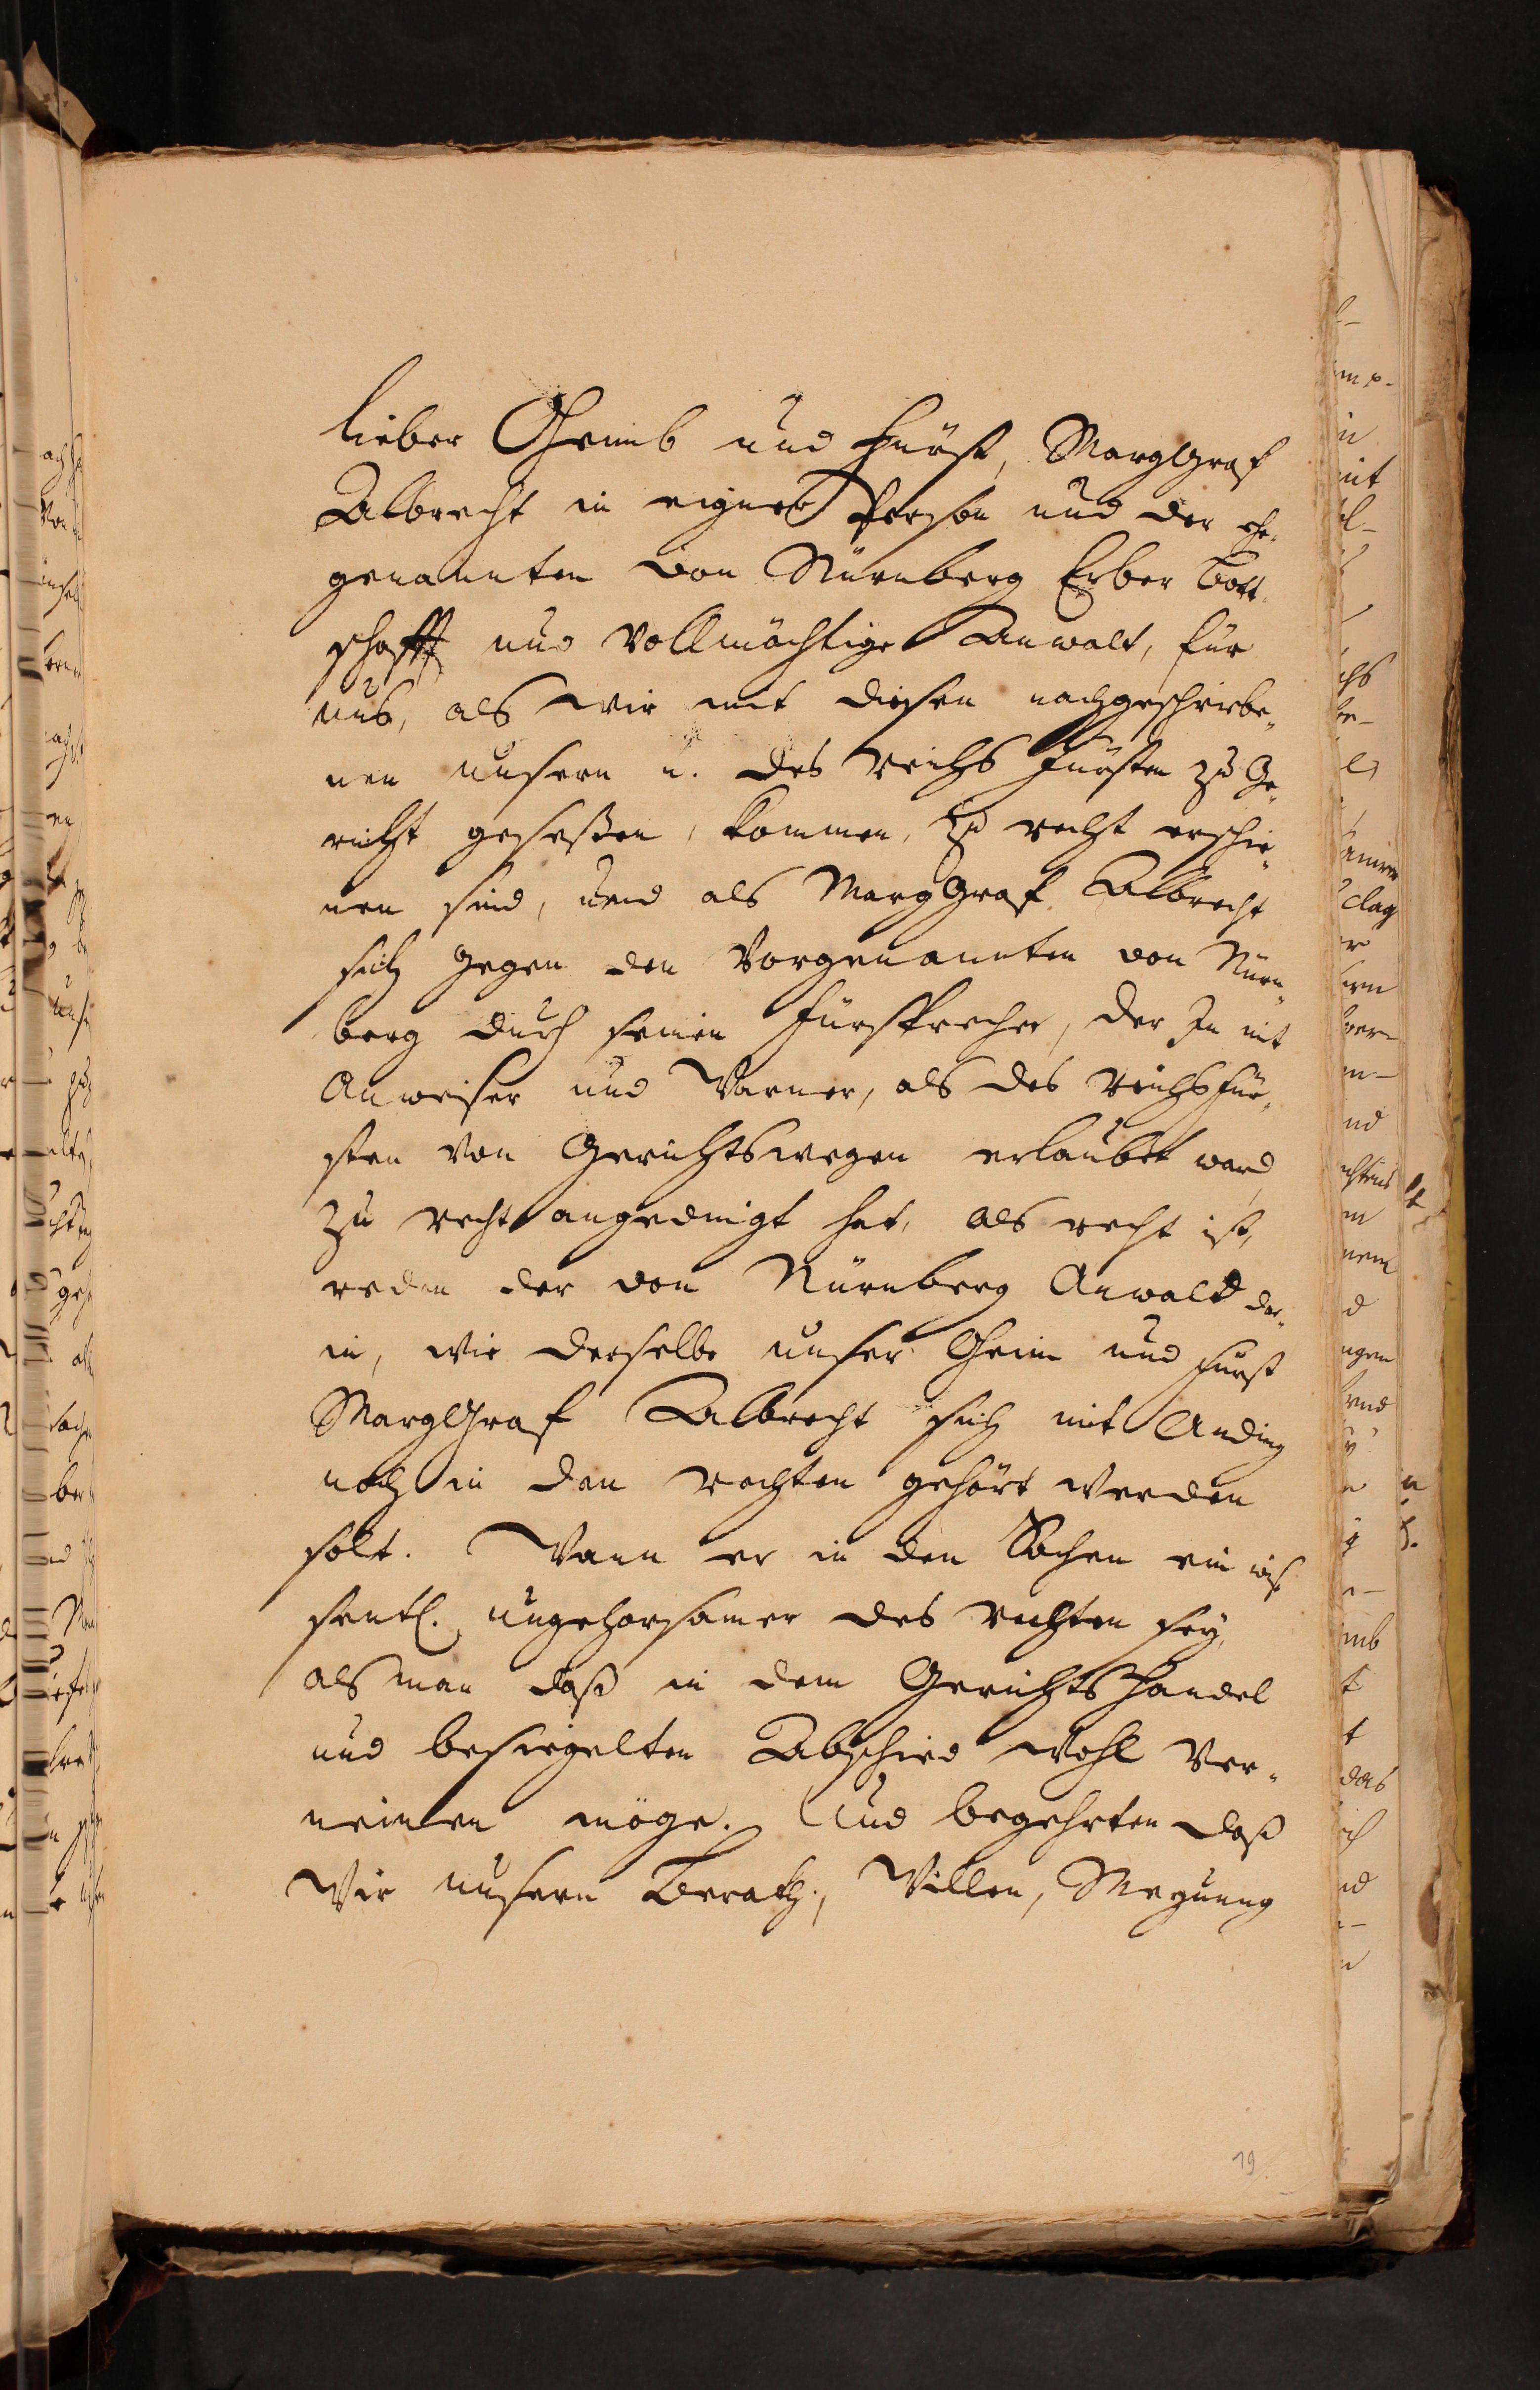 lieber Oheimb und Fürst, MargGraf
Albrecht in eigner Person und der ehe-
genannten von Nürnberg Erber Bott-
schafft und vollmächtige Anwalt, für
uns, als wir mit diesen nachgeschriebe-
nen unsern u. des reichs Fürsten zu Ge-
richt geseßen, kommen, zu recht erschie-
nen sind, und als MargGraf Albrecht
sich gegen den Vorgenannten von Nürn-
berg durch seinen Fürsprecher, der Im mit
Anweiser und Warner, als des reichs für-
sten von Gerichtswegen erlaubet ward
zu recht angedingt hat, als recht ist,
reden der von Nürnberg Anwald dar-
in, wie derselbe unser Oheim und Fürst
MargGraf Albrecht sich mit Anding
noch in den rechten gehört werden
solt. Wann er in den Sachen ein wis-
sentl. ungehorsamer des rechten sey,
als man daß in dem Gerichtshandel
und besiegelten Abschied wohl ver-
neimen möge. Und begehrten daß
Wir unsern Berath, Willen, Meynung
19